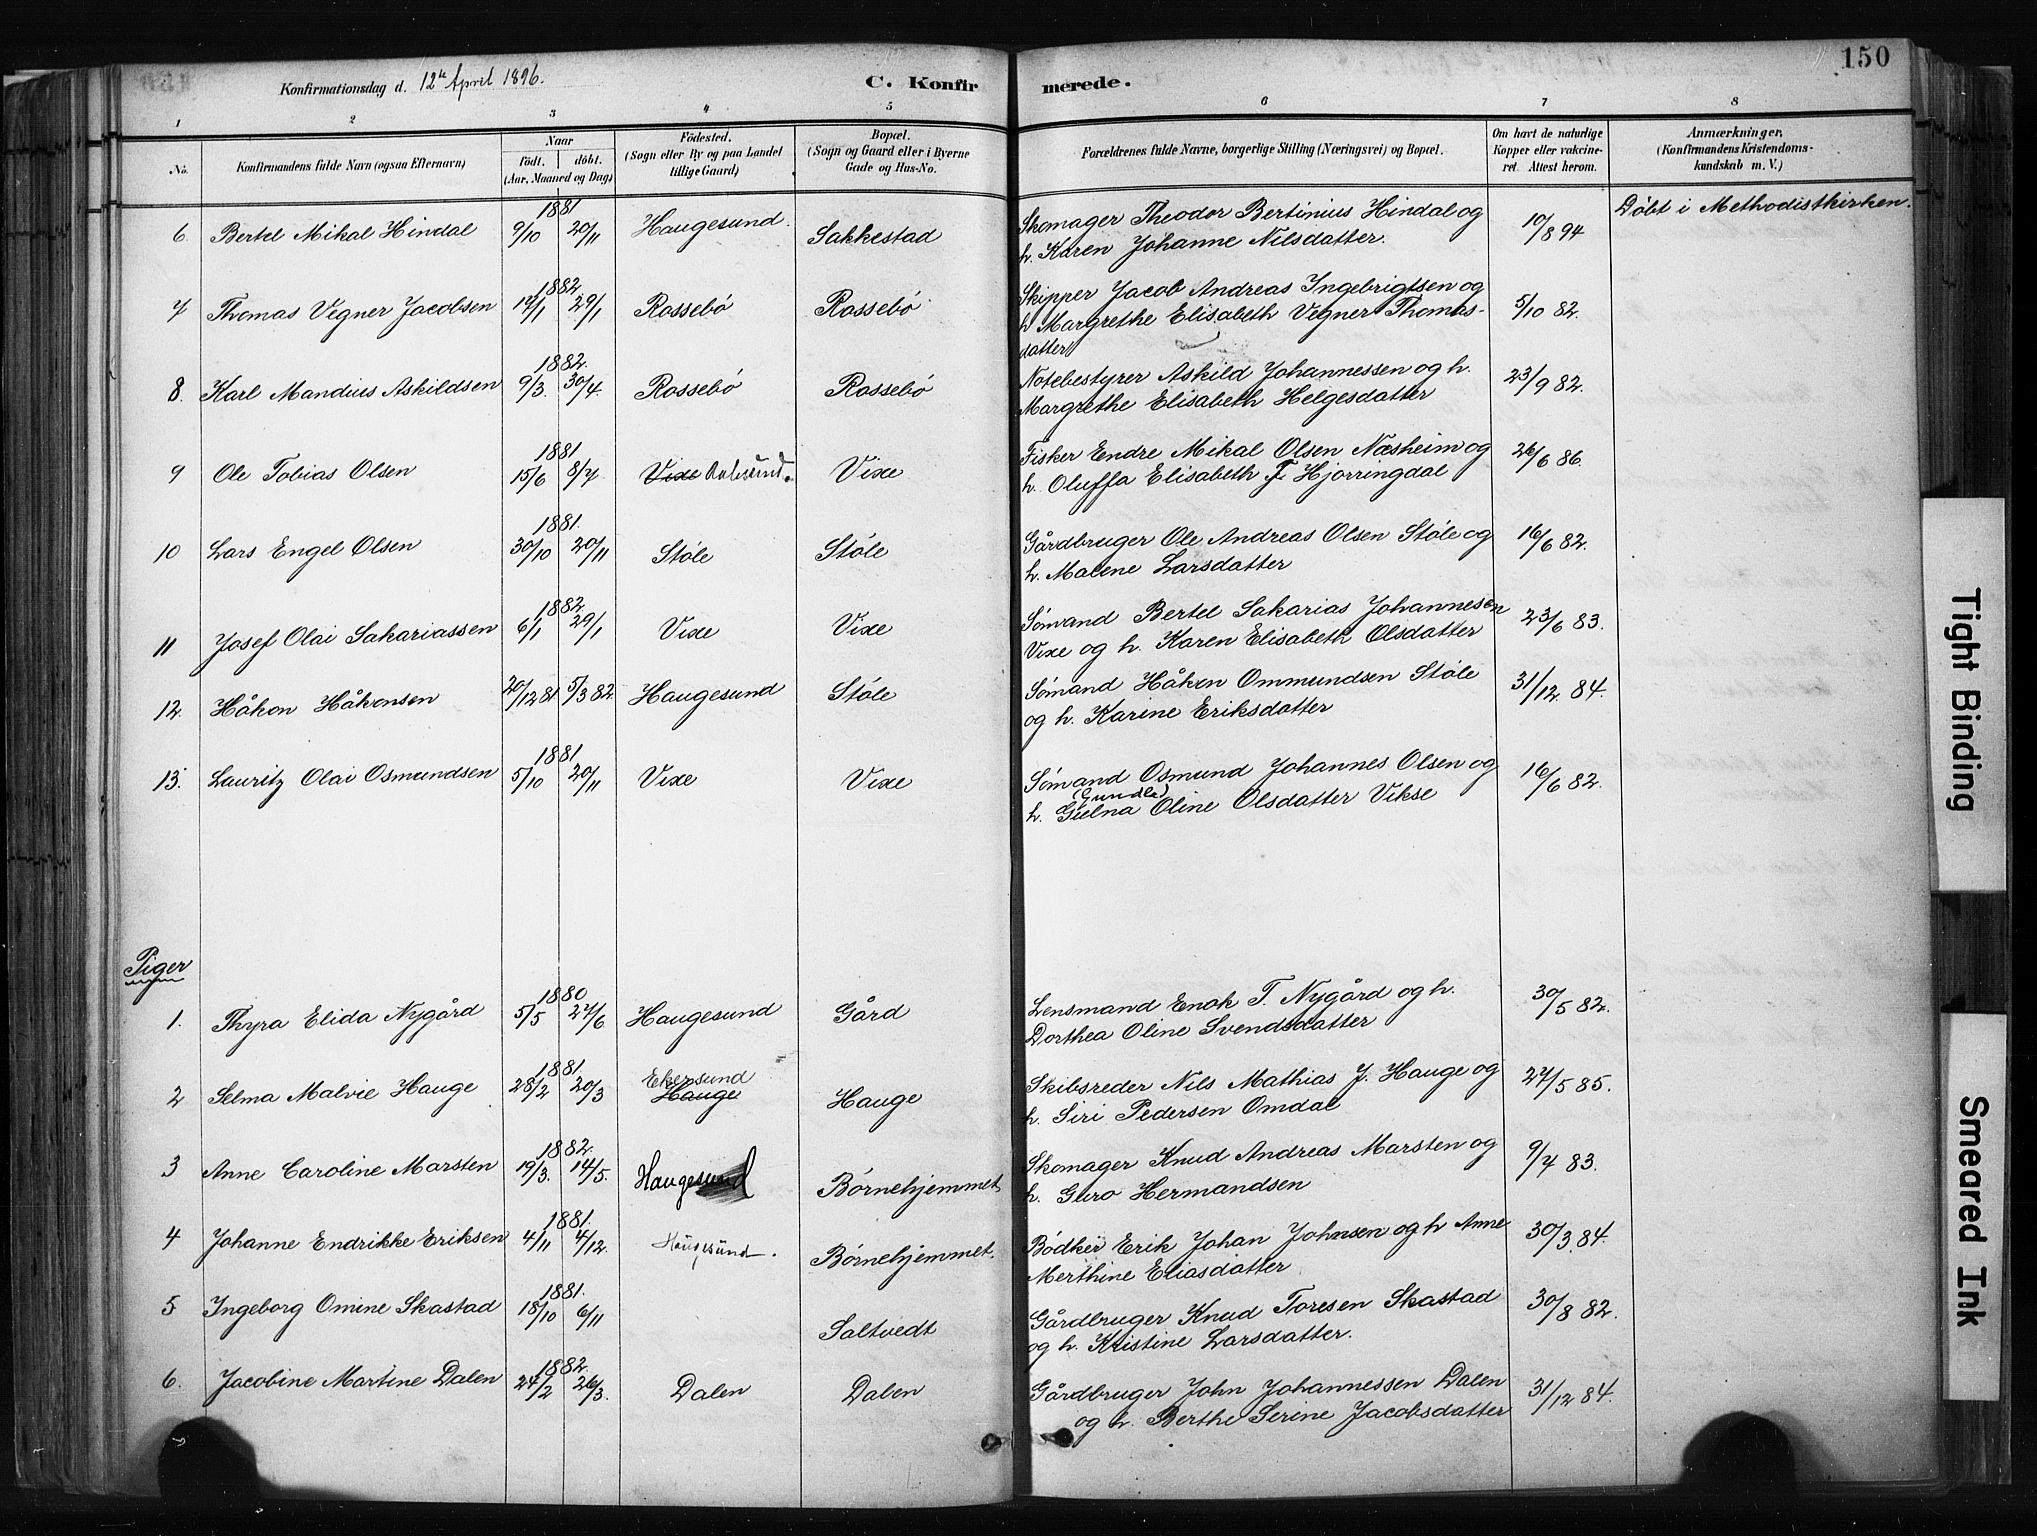 150
Konfirmationsdag d. 12te April 1896.
C. Konfirmerede.
1 2 3 4 5 6 7 8
No. Konfirmandens fulde Navn (ogsaa Efternavn) Naar födt. döbt. (Aar, Maaned og Dag) Födested. (Sogn eller By og paa Landet tillige Gaard) Bopæl. (Sogn og Gaard eller i Byerne Gade og Hus-No. Forældrenes fulde Navne, borgerlige Stilling (Næringsvei) og Bopæl. Om havt de naturlige Kopper eller vakcineret. Attest herom. Anmærkninger, (Konfirmandens Kristendomskundskab m. V.)
6 Bertel Mikal Hindal 1881 9/10 20/11 Haugesund. Sakkestad Skomager Theodor Bertinius Hindal og 10/8 94 Döbt i Methodistkirken.
h. Karen Johanne Nilsdatter.
7 Thomas Vegner Jacobsen 1882 17/1 29/1 Rossebø Rossebø Skipper Jacob Andreas Ingebrigtsen og 5/10 82.
h Margrethe Elisabeth Vegner Thomas-
datter
8. Karl Mandius Askildsen 1882. 9/3. 30/4. Rossebø Rossebø Notebestyrer Askild Johannessen og h. 23/9 82.
Margrethe Elisabeth Helgesdatter
9 Ole Tobias Olsen 1881 15/6 8/7 Vixe Aalesund. Vixe Fisker Endre Mikal Olsen Næsheim og 26/6 86.
h. Oluffa Elisabeth F Hjorringdal
10 Lars Engel Olsen 1881. 30/10 20/11 Støle Støle Gårdbruger Ole Andreas Olsen Støle og 16/6 82.
h. Malene Larsdatter
11 Josef Olai Sakariassen 1882. 6/1 29/1 Vixe Vixe Sømand Bertel Sakarias Johannesen 23/6 83.
Vixe og h. Karen Elisabeth Olsdatter
12. Håkon Håkonsen 20/12 81 5/3 82 Haugesund Støle Sømand Håkon Ommundsen Støle 31/12. 84.
og h. Karine Eriksdatter
13. Lauritz Olai Osmundsen 1881 5/10 20/11 Vixe Vixe Sømand Osmund Johannes Olsen og 16/6 82.
(Gundla)
h. Gulna Oline Olsdatter Vikse
Piger
1. Thyra Elida Nygård 1880 5/5 27/6 Haugesund Gård Lensmand Enok T. Nygård og h. 30/5 82.
Dorthea Oline Svendsdatter
2 Selma Malvie Hauge 1881. 28/2 20/3 Ekersund Hauge Hauge Skibsreder Nils Mathias J. Hauge og 27/5 85.
h. Siri Pedersen Omdal
3 Anne Caroline Marsten 1882. 19/3. 14/5. Haugesund Børnehjemmet Skomager Knud Andreas Marsten og 9/7 83.
h. Guro Hermandsen
4 Johanne Endrikke Eriksen 1881. 4/11 4/12. Haugesund. Børnehjemmet. Bødker Erik Johan Johnsen og h Anne 30/3. 84.
Merthine Eliasdatter
5 Ingeborg Omine Skastad 1881. 18/10 6/11 Saltvedt Gårdbruger Knud Toresen Skastad 30/8 82.
og h. Kristine Larsdatter.
6. Jacobine Martine Dalen 1882. 24/2 26/3. Dalen Dalen Gårdbruger John Johannessen Dalen 31/12 84.
og h. Berthe Serine Jacobsdatter
Tight Binding
Smeared Ink